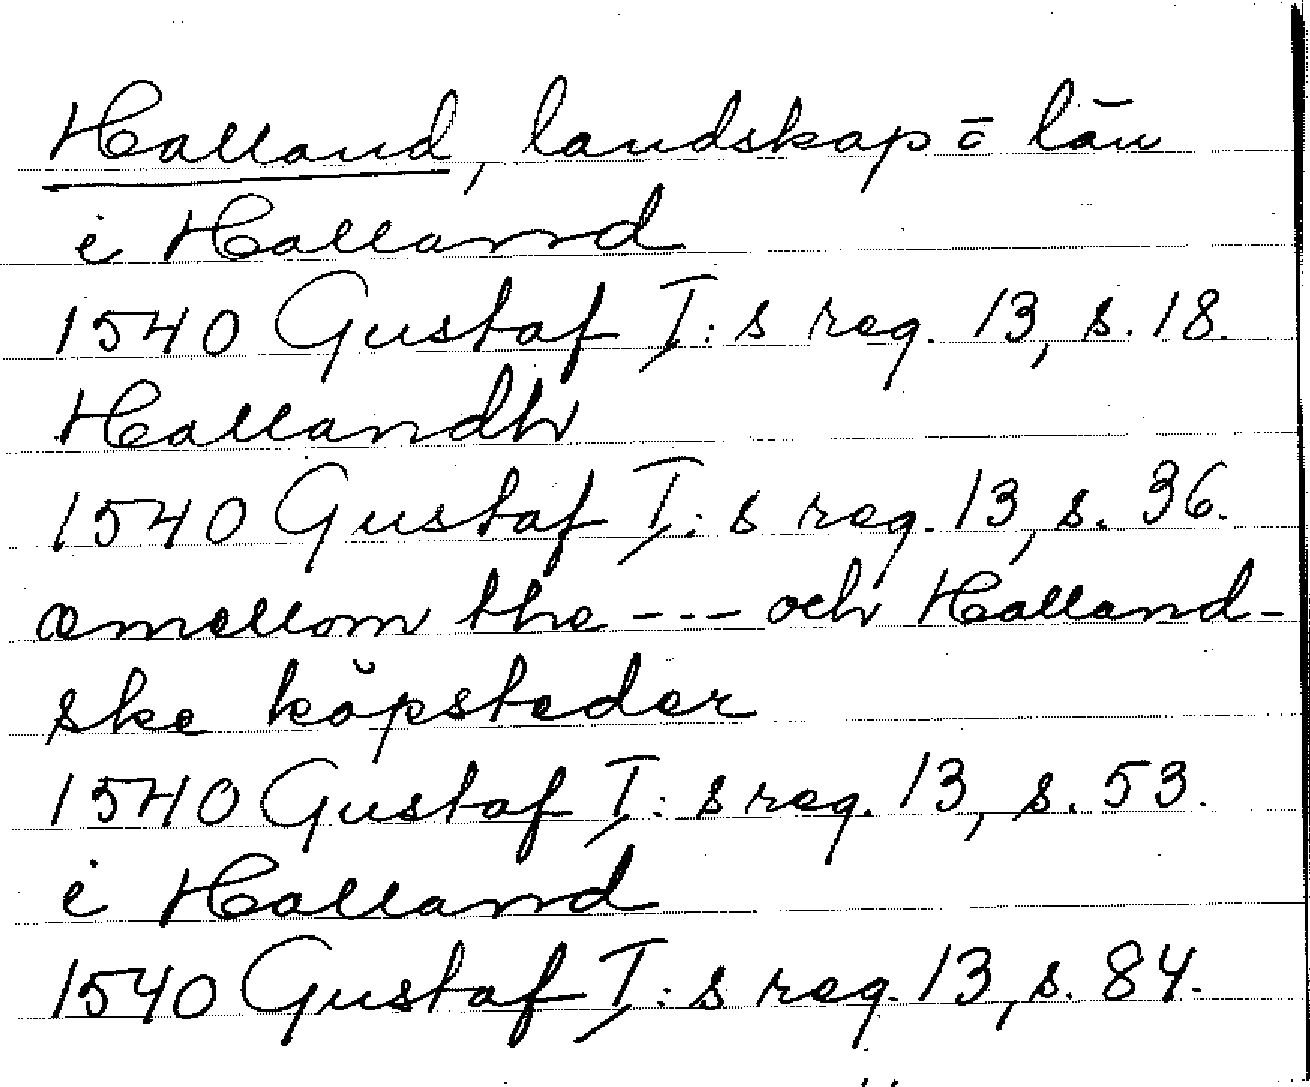 Halland, landskap o län
i Halland
1540 Gustaf I:s reg. 13, s. 18.
Hallandh
1540 Gustaf I:s reg. 13, s. 36.
æmellom the --- och Halland-
ske köpsteder
1540 Gustaf I:s reg. 13, s. 53.
i Halland
1540 Gustaf I:s reg. 13, s. 84.